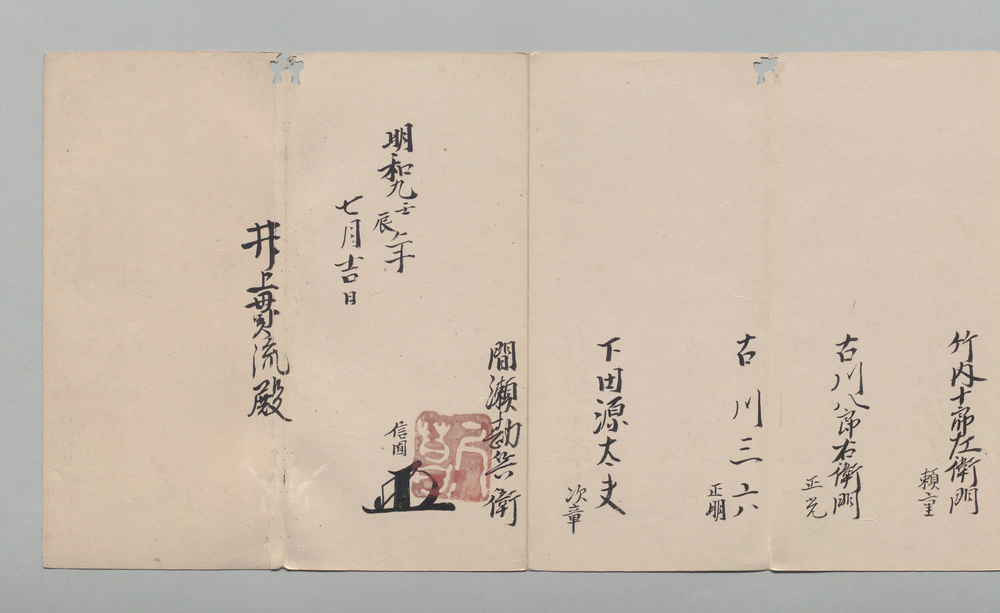 竹内十郎左衛門
頼重
古川八郎右衛門
正光
古川三六
正明
下田源太夫
次章
間瀬勘兵衛
信圓
明和九壬辰年
七月吉日
井上貫流殿